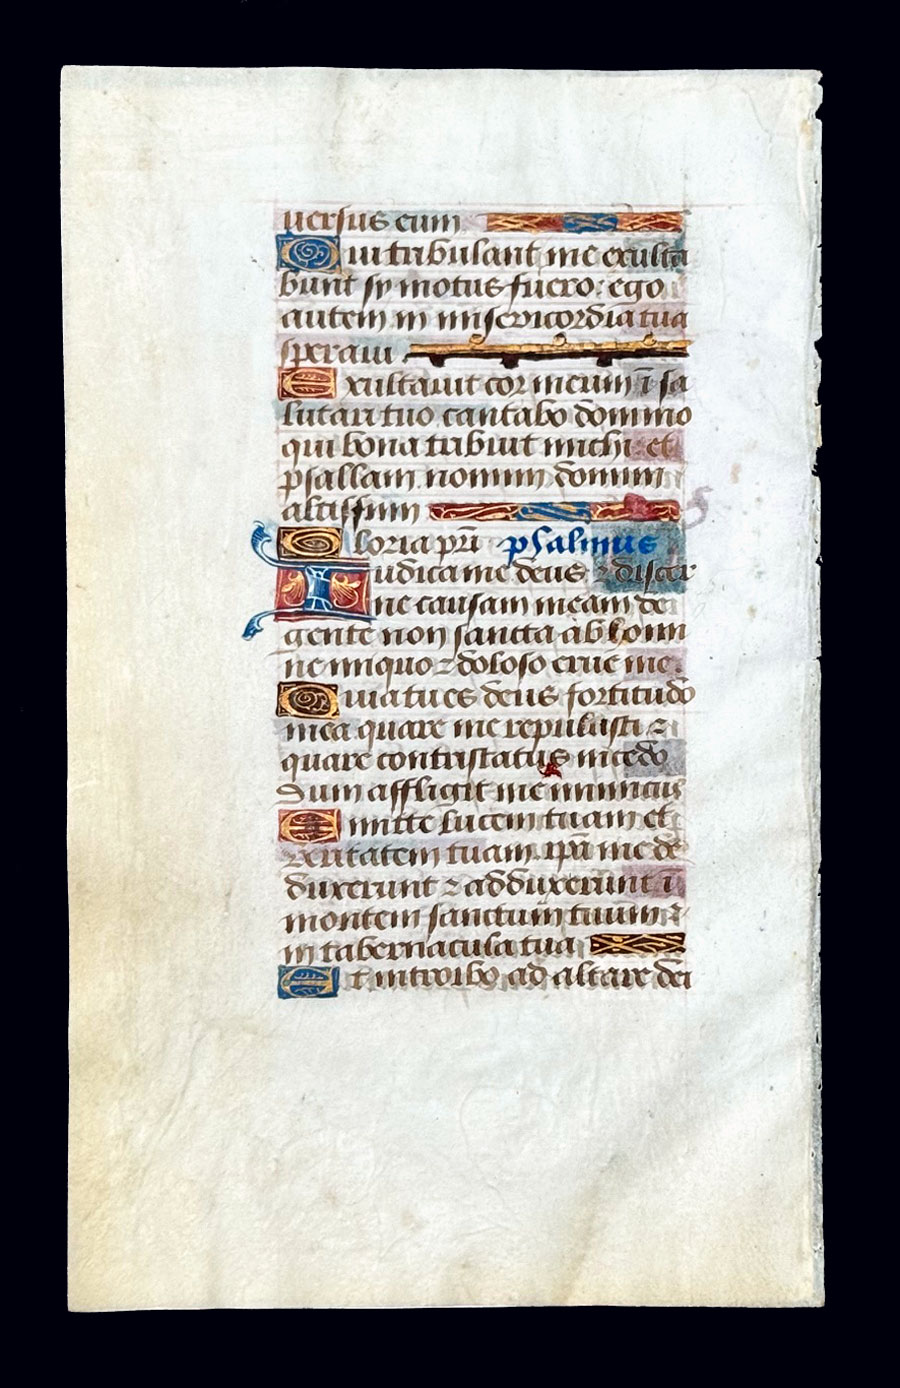 uersus eum
Qui tribulant me exulta
bunt sy motus fuero: ego
autem in misericordia tua
speraui
Exultauit cor meum ī sa
lutari tuo cantabo domino
qui bona tribuit michi et
psallam nomini domini
altissimi
Gloria pr̄i psalmus
Iudica me deus ⁊ discer
ne causam meam de
gente non sancta ab homi
ne iniquo ⁊ doloso erue me.
Quia tu es deus fortitudo
mea quare me repulisti ⁊
quare contristatus incedo
dum affligit me inimicus
Emitte lucem tuam et
ueritatem tuam ipā me de
duxerunt ⁊ adduxerunt ī
montem sanctum tuum ⁊
in tabernacula tua
Et introibo ad altare dei